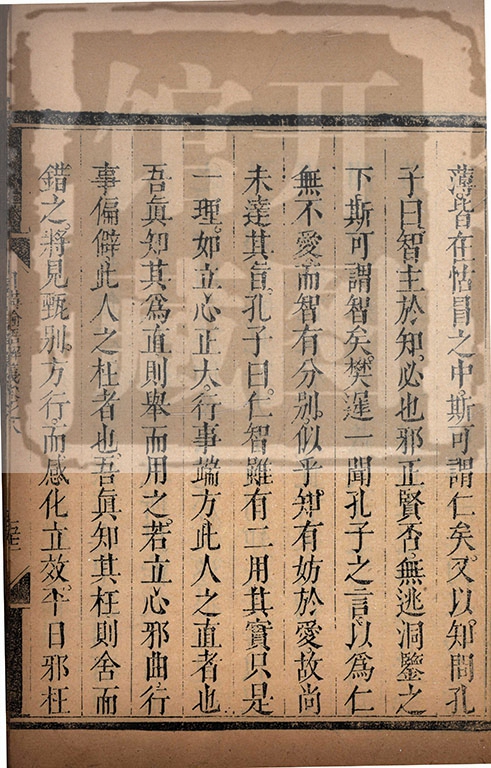 薄皆在怙冒之中斯可謂仁矣又以知問孔
子曰智主於知必也邪正賢否無逃洞鑒之
下斯可謂智矣樊遲一聞孔子之言以為仁
無不愛而智有分別似乎知有妨於愛故尚
未達其旨孔子曰仁智雖有二用其實只是
一理如立心正大行事端方此人之直者也
吾眞知其爲直則舉而用之若立心邪曲行
事偏僻此人之枉者也吾眞知其枉則舍而
錯之將見甄别方行而感化立效平日邪枉